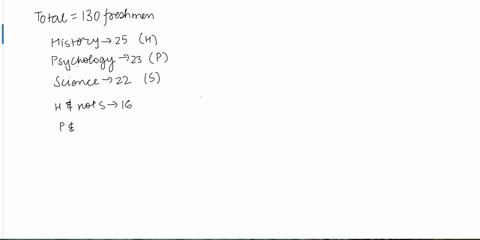 Total = 130 freshmen
History → 25 (H)
Psychology → 23 (P)
Science → 22 (S)
H & not S → 16
P &